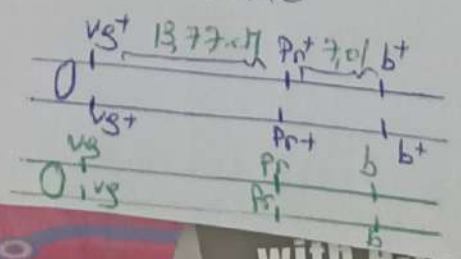 vg+ 13,77cM Pr+ 7,01 b+
vg+ Pr+ b+
vg Pr b
vg Pr b
with